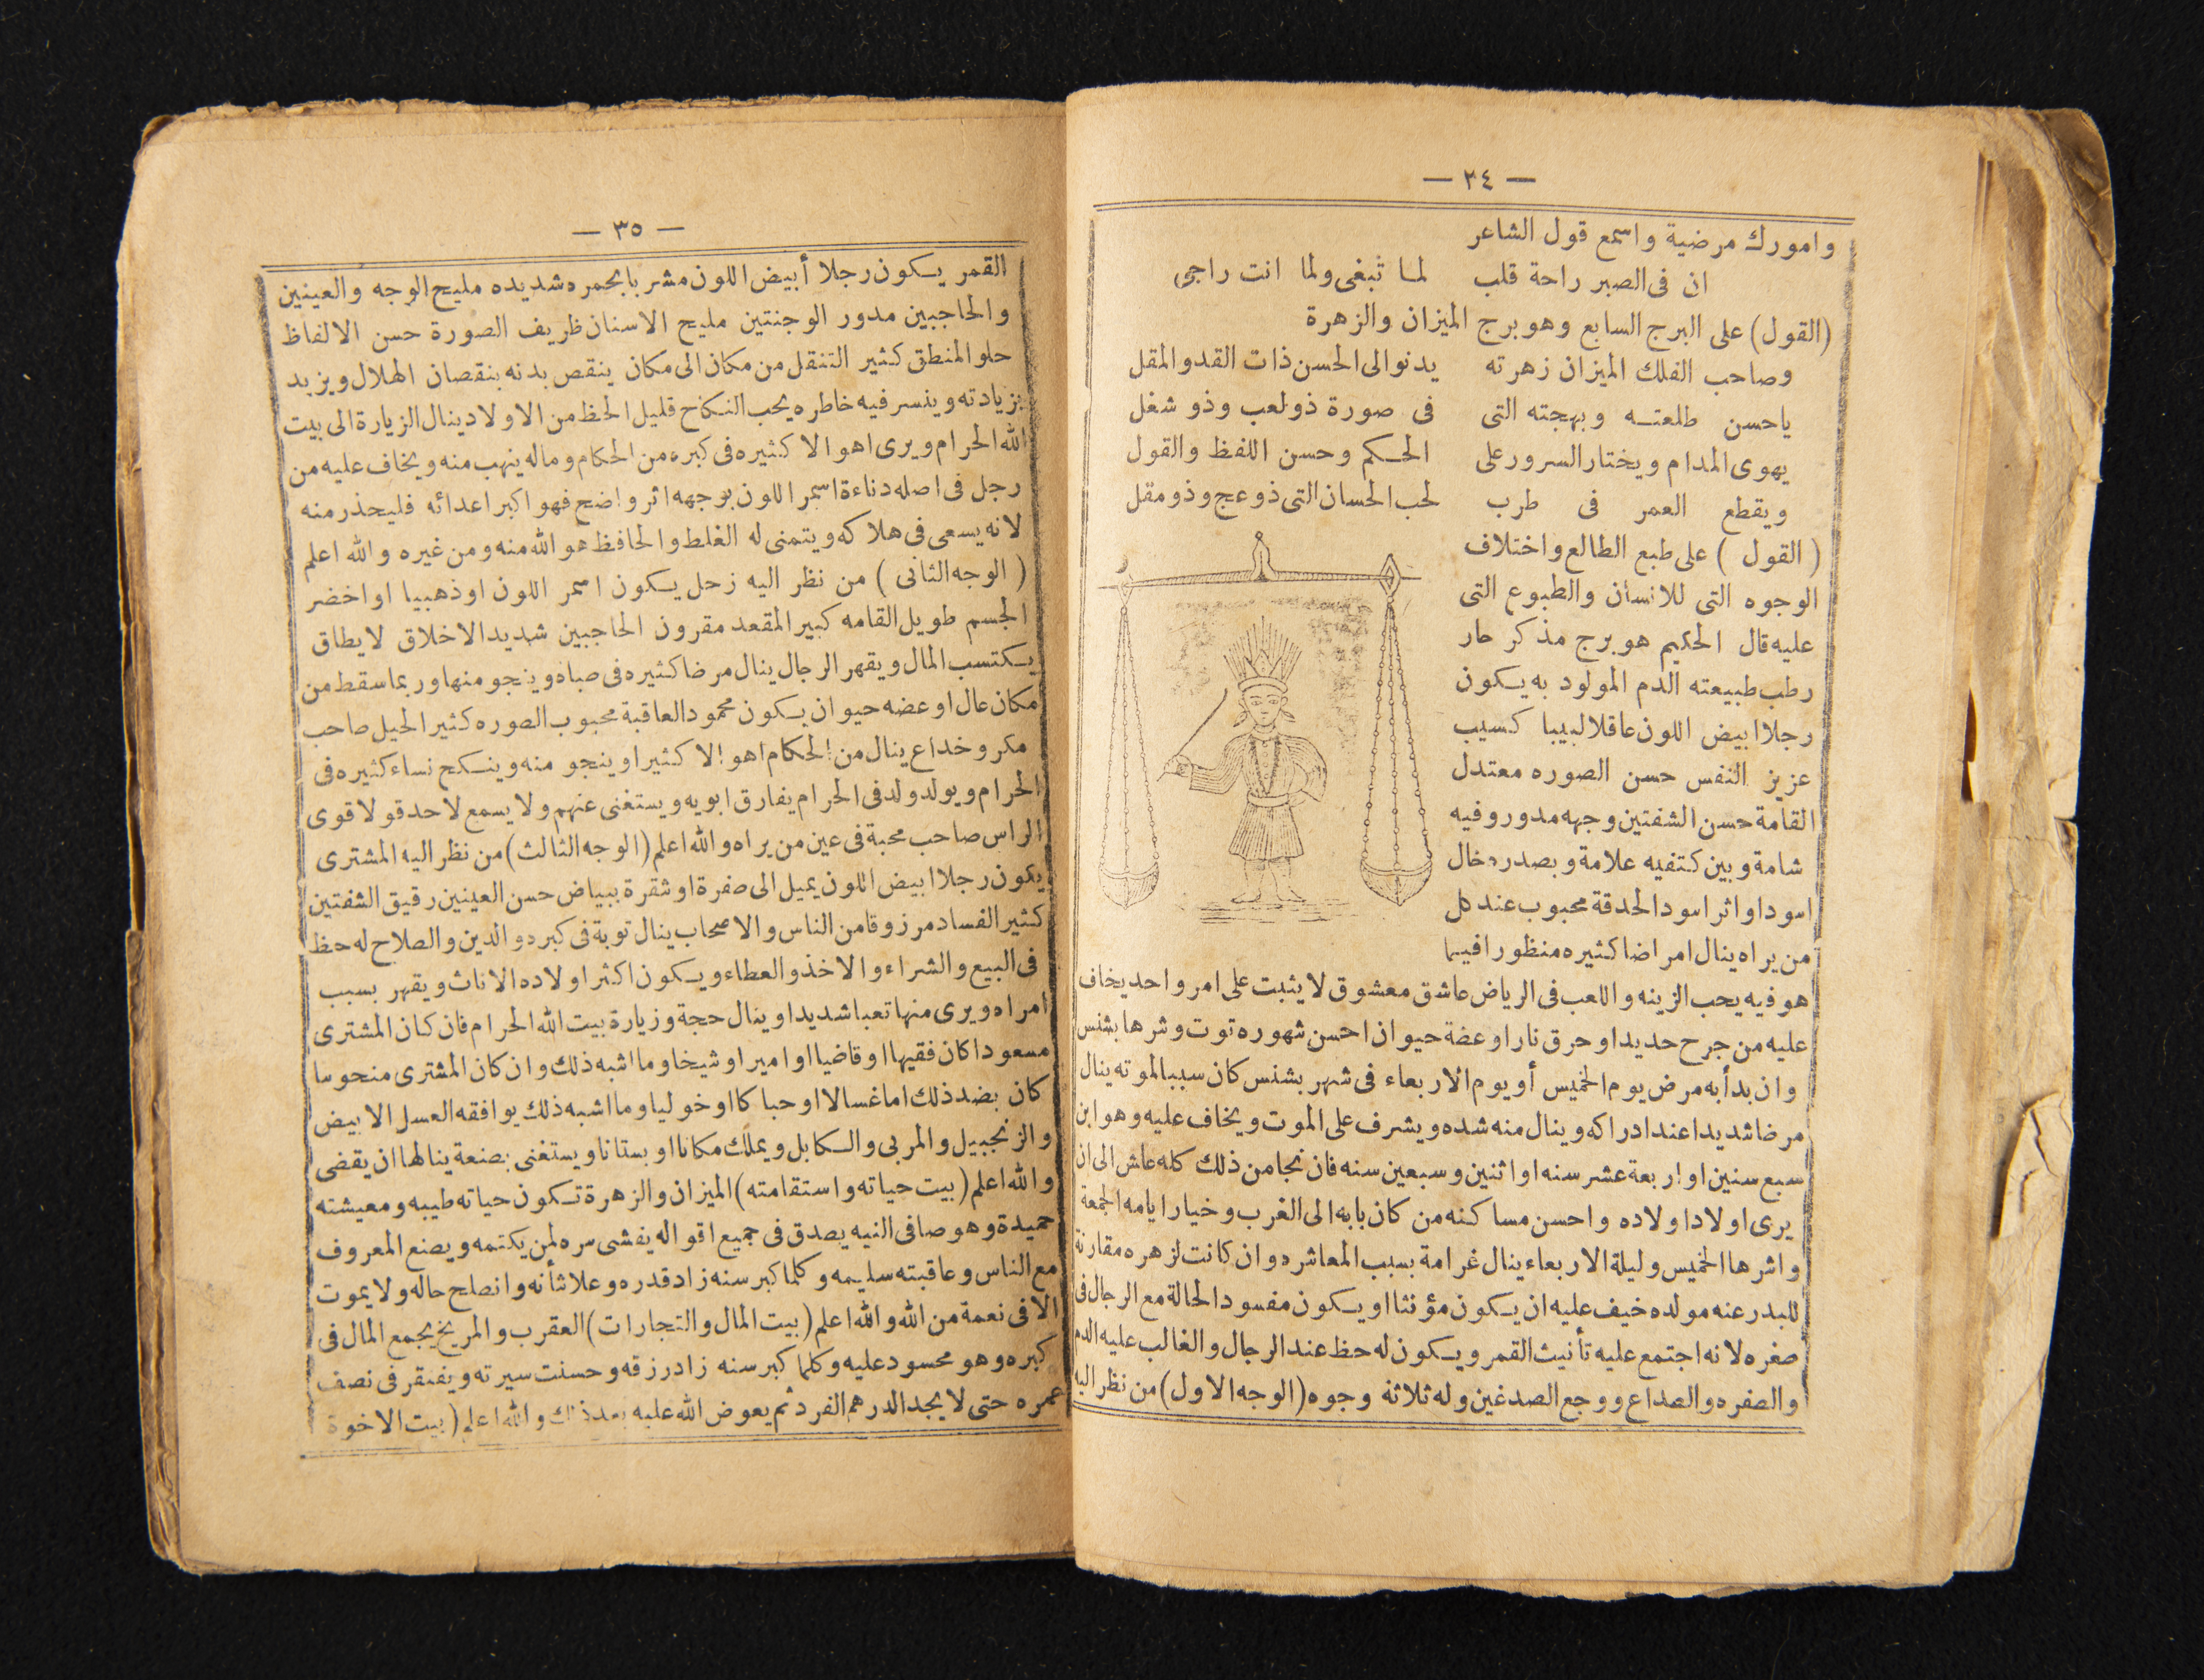 — ٣٤ —
وامورك مرضية واسمع قول الشاعر
ان فى الصبر راحة قلب لما تبغى ولما انت راجى
(القول) على البرج السابع وهو برج الميزان والزهرة
وصاحب الفلك الميزان زهرته يدنو الى الحسن ذات القد والمقل
ياحسن طلعتـه وبهجته التى فى صورة ذو لعب وذو شغل
يهوى المدام ويختار السرور على الحكم وحسن اللفظ والقول
ويقطع العمر فى طرب لحب الحسان التى ذو عج وذو مقل
( القول ) على طبع الطالع واختلاف
الوجوه التى للانسان والطبوع التى
عليه قال الحكيم هو برج مذكر حار
رطب طبيعته الدم المولود به يكون
رجلا ابيض اللون عاقلا لبيبا كسيب
عزيز النفس حسن الصوره معتدل
القامة حسن الشفتين وجهه مدور وفيه
شامة وبين كتفيه علامة وبصدره خال
اسود او اثر اسود الحدقة محبوب عند كل
من يراه ينال امراضا كثيره منظورا فيما
هو فيه يحب الزينه واللعب فى الرياض عاشق معشوق لا يثبت على امر واحد يخاف
عليه من جرح حديد او حرق نار او عضة حيوان احسن شهوره توت وشرها بشنس
وان بدأ به مرض يوم الخميس أو يوم الاربعاء فى شهر بشنس كان سببا لموته ينال
مرضا شديدا عند ادراكه وينال منه شده ويشرف على الموت ويخاف عليه وهو ابن
سبع سنين او اربعة عشر سنه او اثنين وسبعين سنه فان نجا من ذلك كله عاش الى ان
يرى اولادا ولاده واحسن مساكنه من كان بابه الى الغرب وخيار ايامه الجمعة
واشرها الخميس وليلة الاربعاء ينال غرامة بسبب المعاشره وان كانت لزهره مقارنة
للبدر عنه مولده خيف عليه ان يكون مؤنثا او يكون مفسود الحالة مع الرجال فى
صغره لانه اجتمع عليه تأنيث القمر ويكون له حظ عند الرجال والغالب عليه الدم
والصفره والصداع ووجع الصدغين وله ثلاثة وجوه (الوجه الاول) من نظر اليه
— ٣٥ —
القمر يكون رجلا أبيض اللون مشربا بحمره شديده مليح الوجه والعينين
والحاجبين مدور الوجنتين مليح الاسنان ظريف الصورة حسن الالفاظ
حلو المنطق كثير التنقل من مكان الى مكان ينقص بدنه بنقصان الهلال ويزيد
بزيادته وينسر فيه خاطره يحب النكاح قليل الحظ من الاولاد ينال الزيارة الى بيت
الله الحرام ويرى اهوالا كثيره فى كبره من الحكام وماله ينهب منه ويخاف عليه من
رجل فى اصله دناءة اسمر اللون بوجهه اثر واضح فهو اكبر اعدائه فليحذر منه
لانه يسعى فى هلاكه ويتمنى له الغلط والحافظ هو الله منه ومن غيره والله اعلم
( الوجه الثانى ) من نظر اليه زحل يكون اسمر اللون او ذهبيا او اخضر
الجسم طويل القامه كبير المقعد مقرون الحاجبين شديد الاخلاق لا يطاق
يكتسب المال ويقهر الرجال ينال مرضا كثيره فى صباه وينجو منها وربما سقط من
مكان عال او عضه حيوان يكون محمود العاقبة محبوب الصوره كثير الحيل صاحب
مكر وخداع ينال من الحكام اهوالا كثيرا وينجو منه وينكح نساء كثيره فى
الحرام ويولد ولد فى الحرام يفارق ابويه ويستغنى عنهم ولا يسمع لاحد قولا قوى
الراس صاحب محبة فى عين من يراه والله اعلم (الوجه الثالث) من نظر اليه المشترى
يكون رجلا ابيض اللون يميل الى صفرة او شقرة ببياض حسن العينين رقيق الشفتين
كثير الفساد مرزوقا من الناس والاصحاب ينال توبة فى كبره والدين والصلاح له حظ
فى البيع والشراء والاخذ والعطاء ويكون اكثر اولاده الاناث ويقهر بسبب
امراه ويرى منها تعبا شديدا وينال حجة وزيارة بيت الله الحرام فان كان المشترى
مسعودا كان فقيها او قاضيا او اميرا وشيخا وما اشبه ذلك وان كان المشترى منحوسا
كان بضد ذلك اما غسالا او حباكا او خوليا وما اشبه ذلك يوافقه العسل الابيض
والزنجبيل والمربى والكابل ويملك مكانا او بستانا ويستغنى بصنعة ينالها ان يقضى
والله اعلم (بيت حياته واستقامته) الميزان والزهرة تكون حياته طيبه ومعيشته
حميدة وهو صافى النيه يصدق فى جميع اقواله يفشى سره لمن يكتمه ويصنع المعروف
مع الناس وعاقبته سليمه وكلما كبر سنه زاد قدره وعلا شأنه وانصلح حاله ولا يموت
الا فى نعمة من الله والله اعلم (بيت المال والتجارات) العقرب والمريخ يجمع المال فى
كبره وهو محسود عليه وكلما كبر سنه زاد رزقه وحسنت سيرته ويفتقر فى نصف
عمره حتى لا يجد الدرهم الفرد ثم يعوض الله عليه بعد ذلك والله اعلم (بيت الاخوة